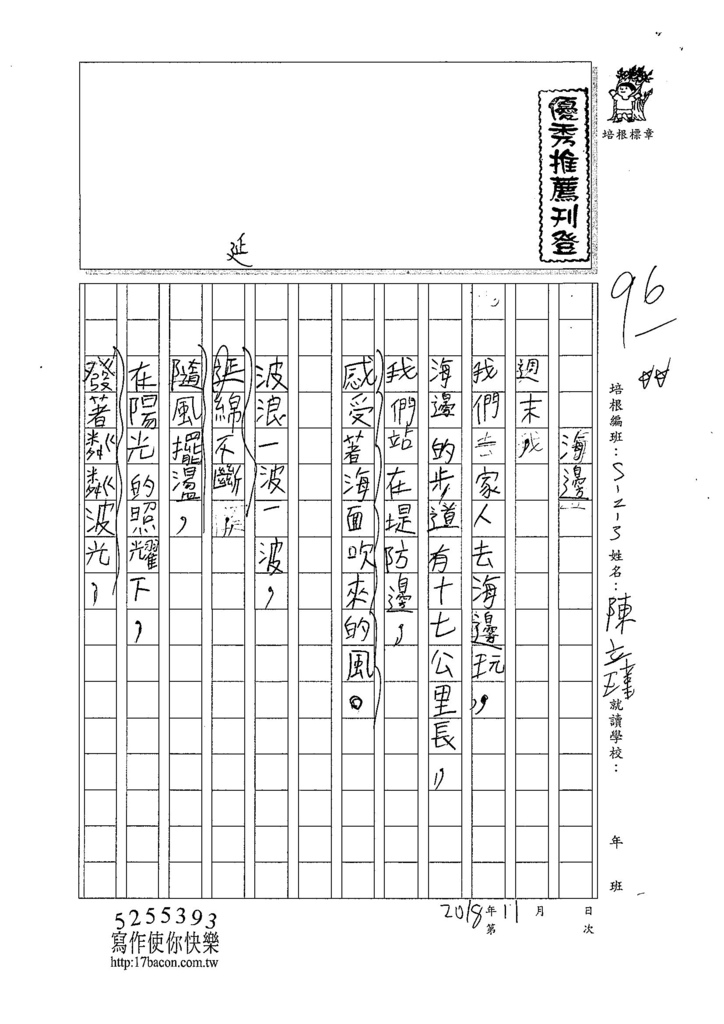 培根標章
優秀推薦刊登
延
96
培根編班：S-Z-3 姓名：陳立瑋 就讀學校： 年 班
海邊
週末，我
我們去家人去海邊玩，
海邊的步道有十七公里長，
我們站在堤防邊，
感受著海面吹來的風。
波浪一波一波，
延綿不斷，
隨風擺盪，
在陽光的照耀下，
發著粼粼波光，
2018年11月 日
第 次
5255393
寫作使你快樂
http:17bacon.com.tw